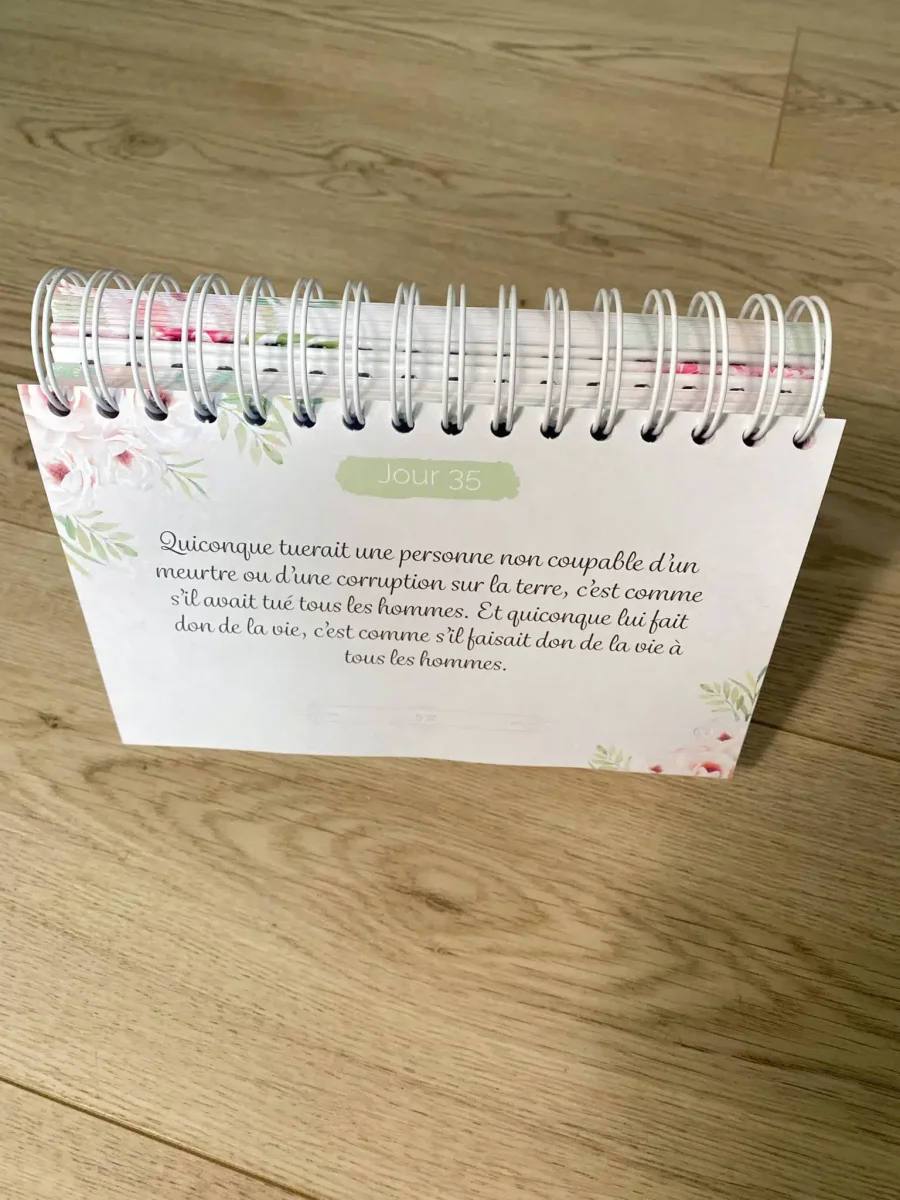 Jour 35
Quiconque tuerait une personne non coupable d'un
meurtre ou d'une corruption sur la terre, c'est comme
s'il avait tué tous les hommes. Et quiconque lui fait
don de la vie, c'est comme s'il faisait don de la vie à
tous les hommes.